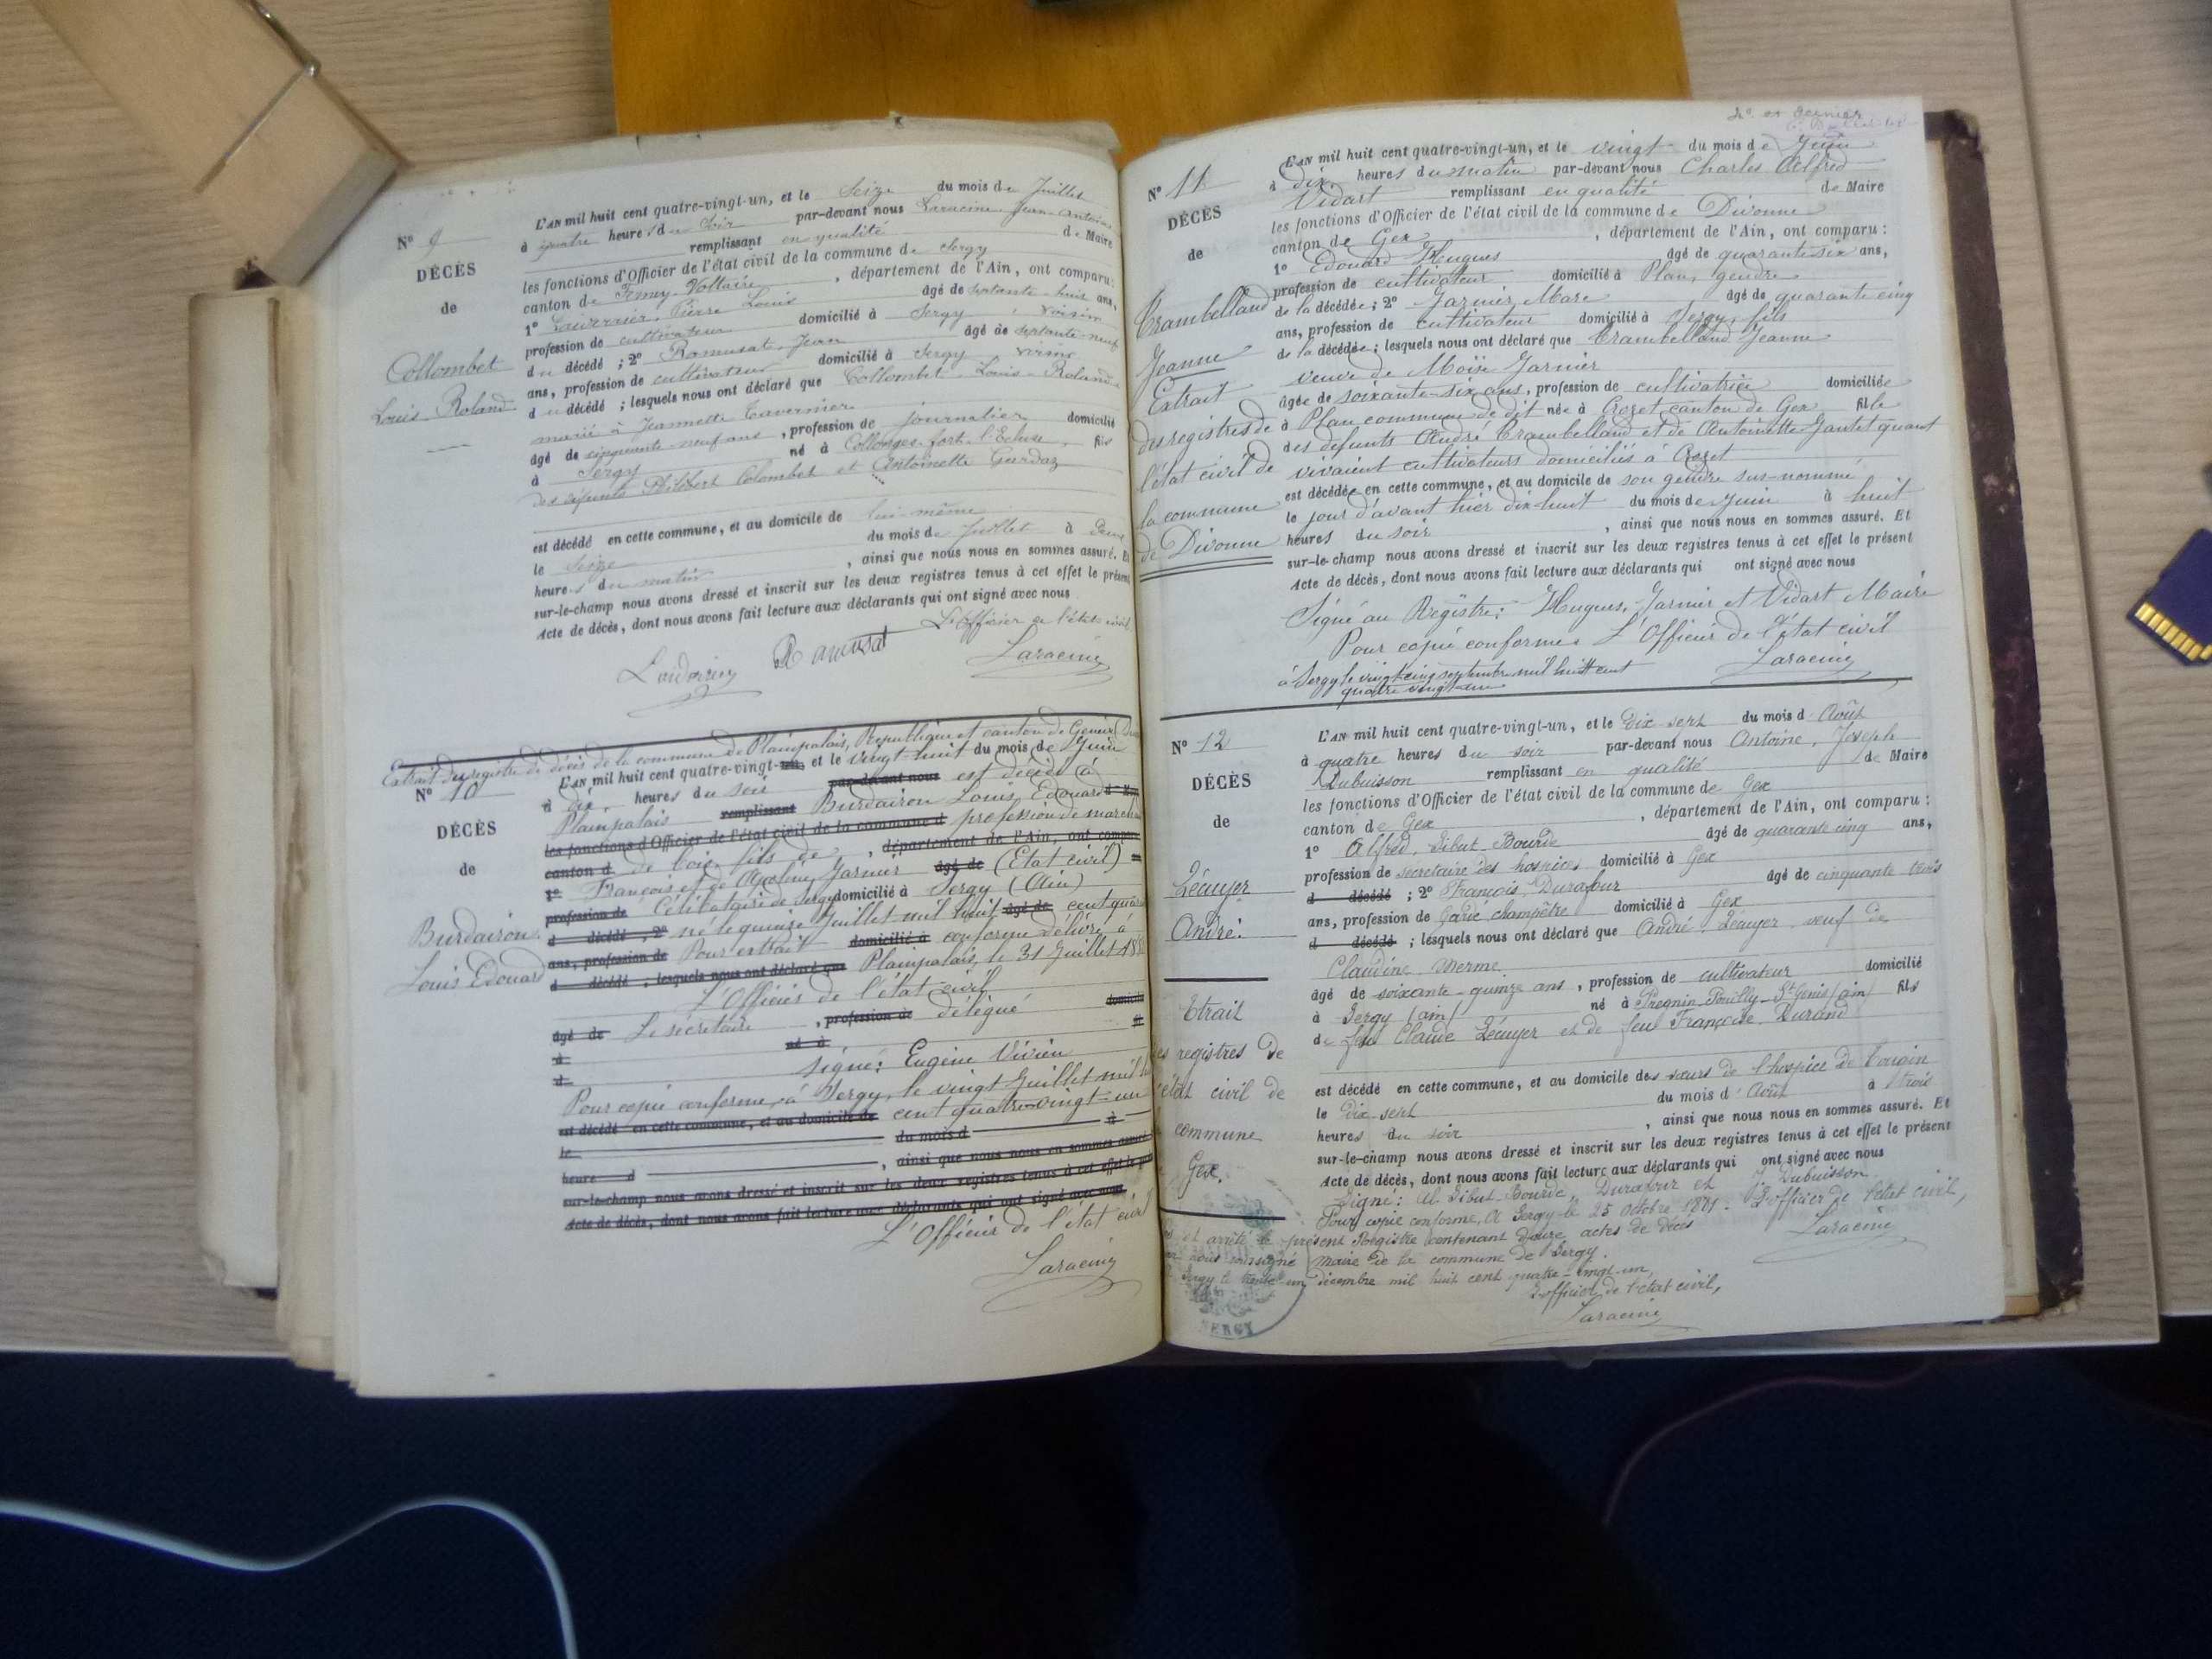 N° 9
DÉCÈS
de
Collombet
Louis Roland
L'AN mil huit cent quatre-vingt-un, et le seize du mois de Juillet
à quatre heures du soir par-devant nous Laracine Jean-Antoine
remplissant en qualité de Maire
les fonctions d'Officier de l'état civil de la commune de Sergy
canton de Ferney-Voltaire, département de l'Ain, ont comparu :
1° Pierre Louis âgé de septante-huit ans,
profession de cultivateur domicilié à Sergy, voisin
du décédé ; 2° Ramusat Jean âgé de septante-neuf
ans, profession de cultivateur domicilié à Sergy voisin
du décédé ; lesquels nous ont déclaré que Collombet Louis-Roland
marié à Jeannette Tavernier
âgé de cinquante neuf ans, profession de journalier domicilié
à Sergy né à Collonges-fort-l'Ecluse, fils
des défunts Philibert Colombet et Antoinette Gardaz
est décédé en cette commune, et au domicile de lui-même
le seize du mois de Juillet à
heures du matin, ainsi que nous nous en sommes assuré. Et
sur-le-champ nous avons dressé et inscrit sur les deux registres tenus à cet effet le présent
Acte de décès, dont nous avons fait lecture aux déclarants qui ont signé avec nous
L'Officier de l'état civil
Ramusat Laracine
Extrait du registre de décès de la commune de Plainpalais, République et canton de Genève
N° 10
DÉCÈS
de
Burdairon
Louis Edouard
L'AN mil huit cent quatre-vingt-un, et le vingt-huit du mois de Juin
à dix heures du soir par-devant nous est décédé à
Plainpalais remplissant Burdairon Louis Edouard
les fonctions d'Officier de l'état civil de la commune d profession de marchand
canton d de bois fils de, département de l'Ain, ont comparu
1° François et de Garnier âgé de (Etat civil)
profession de Célibataire de Sergy domicilié à Sergy (Ain)
d décédé ; 2° né le quinze Juillet mil huit âgé de cent
ans, profession de Pour extrait domicilié à conforme délivré à
d décédé ; lesquels nous ont déclaré que Plainpalais, le 31 Juillet
L'Officier de l'état civil
âgé de Le secrétaire, profession de délégué domicilié
à né à fils
d signé: Eugène Vivien
Pour copie conforme, à Sergy, le vingt Juillet mil
est décédé en cette commune, et au domicile de cent quatre-vingt-un
le du mois d à
heure d, ainsi que nous nous en sommes assuré
sur-le-champ nous avons dressé et inscrit sur les deux registres tenus à cet effet le
Acte de décès, dont nous avons fait lecture aux déclarants qui ont signé avec nous
L'Officier de l'état civil
Laracine
2° et dernier
N° 11
DÉCÈS
de
Crambelland
Jeanne
Extrait
des registres de
l'état civil de
la commune
de Divonne
L'AN mil huit cent quatre-vingt-un, et le vingt du mois de Juin
à dix heures du matin par-devant nous Charles Alfred
Vidart remplissant en qualité de Maire
les fonctions d'Officier de l'état civil de la commune de Divonne
canton de Gex, département de l'Ain, ont comparu :
1° Edouard Hugues âgé de quarante-six ans,
profession de cultivateur domicilié à Plan, gendre
de la décédée ; 2° Garnier Marc âgé de quarante cinq
ans, profession de cultivateur domicilié à Sergy, fils
de la décédée ; lesquels nous ont déclaré que Crambelland Jeanne
veuve de Moïse Garnier
âgée de soixante-six ans, profession de cultivatrice domiciliée
à Plan commune de dit née à Crozet canton de Gex fille
des défunts André Crambelland et de Antoinette Gautet quant
vivaient cultivateurs domiciliés à Crozet
est décédée en cette commune, et au domicile de son gendre sus-nommé
le jour d'avant hier dix-huit du mois de Juin à huit
heures du soir, ainsi que nous nous en sommes assuré. Et
sur-le-champ nous avons dressé et inscrit sur les deux registres tenus à cet effet le présent
Acte de décès, dont nous avons fait lecture aux déclarants qui ont signé avec nous
Signé au Registre: Hugues, Garnier et Vidart Maire
Pour copie conforme L'Officier de l'état civil
à Sergy le vingt-cinq septembre mil huit cent Laracine
quatre vingt-un
N° 12
DÉCÈS
de
Lécuyer
André.
Etrait
des registres de
l'état civil de
commune
Gex.
L'AN mil huit cent quatre-vingt-un, et le dix sept du mois d'Août
à quatre heures du soir par-devant nous Antoine, Joseph
Dubuisson remplissant en qualité de Maire
les fonctions d'Officier de l'état civil de la commune de Gex
canton de Gex, département de l'Ain, ont comparu :
1° Alfred, Bourde âgé de quarante cinq ans,
profession de secrétaire des hospices domicilié à Gex
d décédé ; 2° François Durafour âgé de cinquante trois
ans, profession de Garde champêtre domicilié à Gex
d décédé ; lesquels nous ont déclaré que André Lécuyer veuf de
Claudine Merme
âgé de soixante-quinze ans, profession de cultivateur domicilié
à Sergy (ain) né à Pregnin-Pouilly-St Genis (ain) fils
de feu Claude Lécuyer et de feue Françoise Durand
est décédé en cette commune, et au domicile des sœurs de l'hospice de Tougin
le dix sept du mois d'Août à trois
heures du soir, ainsi que nous nous en sommes assuré. Et
sur-le-champ nous avons dressé et inscrit sur les deux registres tenus à cet effet le présent
Acte de décès, dont nous avons fait lecture aux déclarants qui ont signé avec nous
Signé: Bourde, Durafour et J. Dubuisson
Pour copie conforme, A Sergy le 25 octobre 1881. L'officier de l'état civil,
Laracine
et arrêté le présent Registre contenant douze actes de décès
nous soussigné Maire de la commune de Sergy.
Sergy le trente-un décembre mil huit cent quatre-vingt-un,
L'officier de l'état civil,
Laracine
SERGY